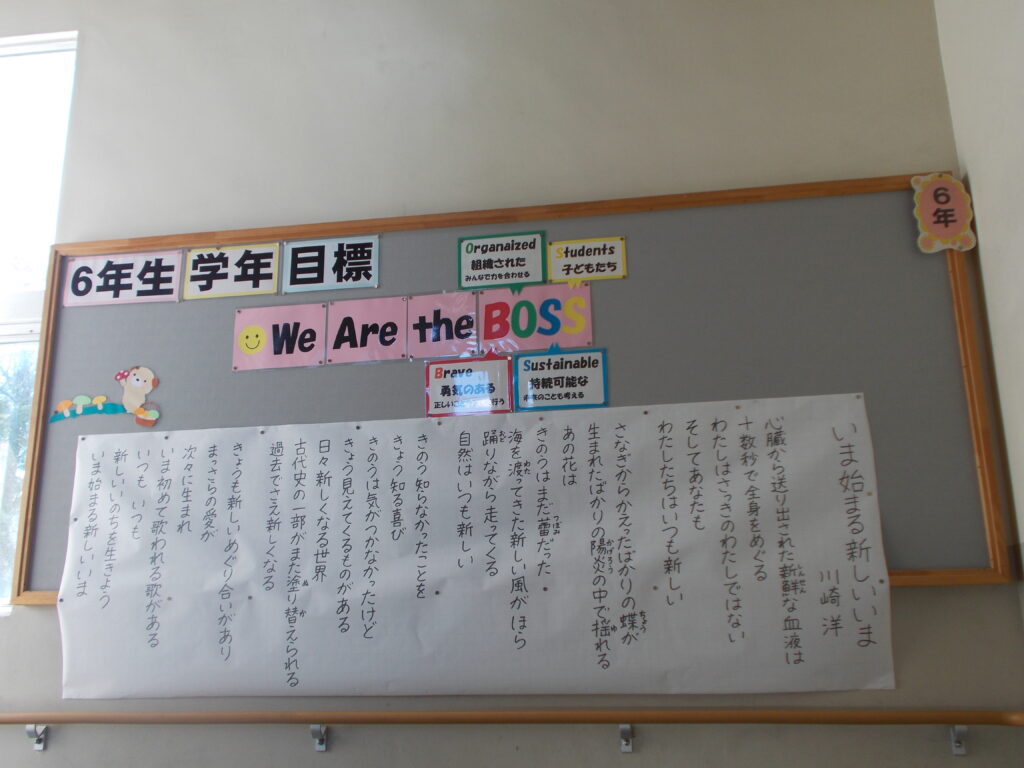 6年
6年生 学年 目標
Organaized
組織された
みんなで力を合わせる
Students
子どもたち
We Are the BOSS
Brave
勇気のある
正しいこと
行う
Sustainable
持続可能な
のことも考える
いま始まる新しいいま
川崎洋
心臓から送り出された新鮮な血液は
十数秒で全身をめぐる
わたしはさっきのわたしではない
そしてあなたも
わたしたちはいつも新しい
さなぎからかえったばかりの蝶が
生まれたばかりの陽炎の中で揺れる
あの花は
きのうはまだ蕾だった
海を渡ってきた新しい風がほら
踊りながら走ってくる
自然はいつも新しい
きのう知らなかったことを
きょう知る喜び
きのうは気がつかなかったけど
きょう見えてくるものがある
日々新しくなる世界
古代史の一部がまた塗り替えられる
過去でさえ新しくなる
きょうも新しいめぐり合いがあり
まっさらの愛が
次々に生まれ
いま初めて歌われる歌がある
いつも いつも
新しいいのちを生きよう
いま始まる新しいいま